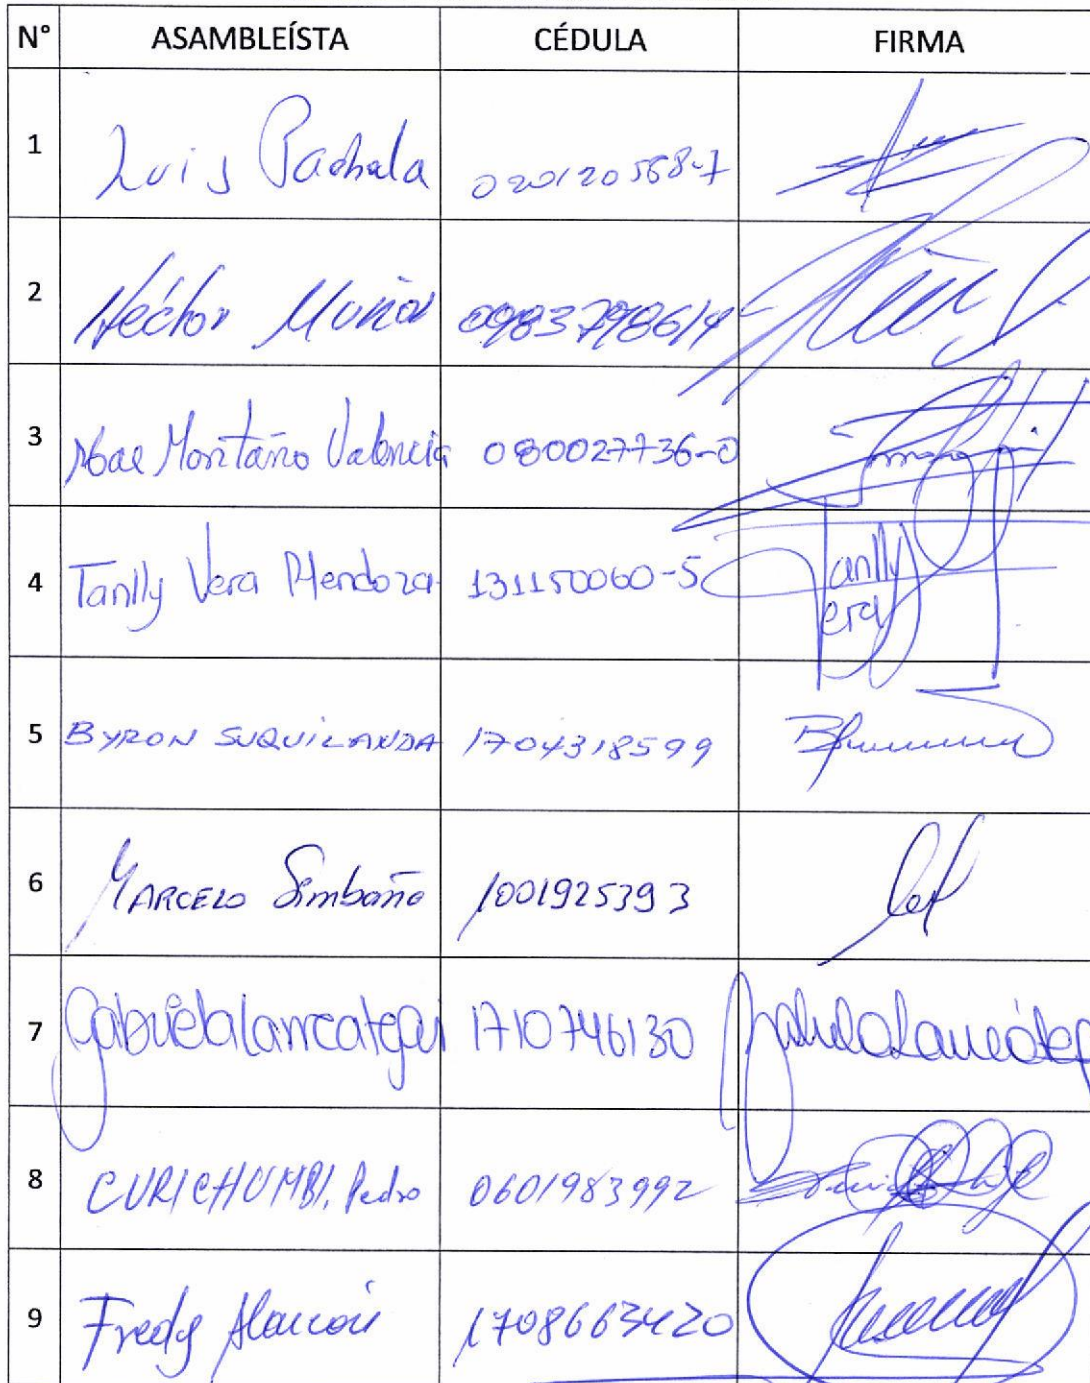 N° ASAMBLEÍSTA CÉDULA FIRMA
1 Luis Pachala 020120568-7
2 Héctor Muñoz
3 Montaño Valencia 080027736-0
4 Tanlly Vera Mendoza 131150060-5 Tanlly Vera
5 BYRON SUQUILANDA 1704318599
6 MARCELO Simbaña 1001925393
7 Gabriela Larreategui 1710746130
8 CURICHUMBI, Pedro 0601983992
9 Fredy Alarcón 1708663420